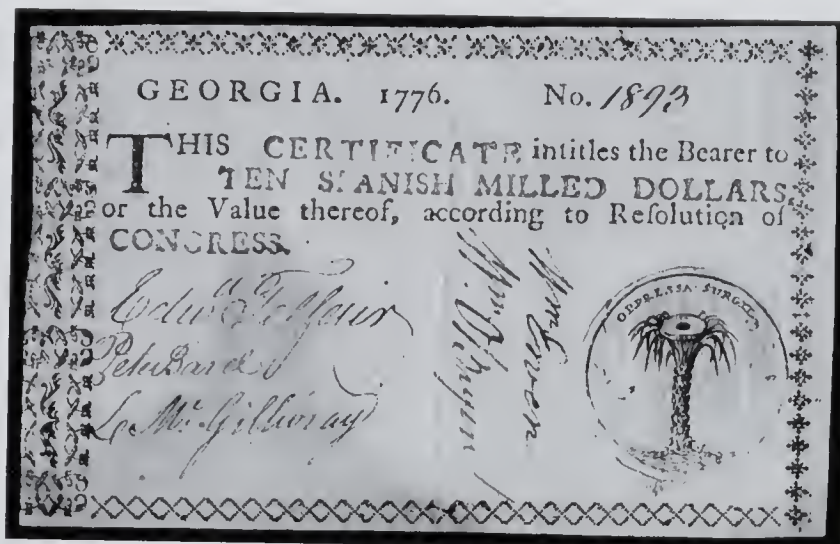 GEORGIA. 1776. No. 1893
THIS CERTIFICATE intitles the Bearer to
TEN SPANISH MILLED DOLLARS,
or the Value thereof, according to Reſolution of
CONGRESS.
Edwd Telfair
Peter Bard
L. McGillivray
Wm Ewen
Wm O'Bryen
OPPRESSA SURGIT